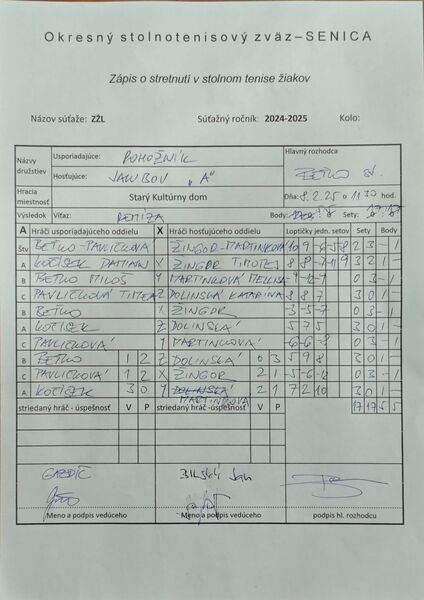 Okresný stolnotenisový zväz–SENICA
Zápis o stretnutí v stolnom tenise žiakov
Názov súťaže: ZŽL Súťažný ročník: 2024-2025 Kolo:
Názvy družstiev Usporiadajúce: POHOŽNÍK Hlavný rozhodca
Hosťujúce: JAKUBOV „A" BEŤKO
Hracia miestnosť Starý Kultúrny dom Dňa: 8.2.25 o 11 30 hod.
Výsledok Víťaz: REMÍZA Body: Sety: 17:17
A Hráči usporiadajúceho oddielu X Hráči hosťujúceho oddielu Loptičky jedn. setov Sety Body
Štv BEŤKO-PAVLIČKOVÁ ŽINGOR-MARTINKOVÁ 10 9 -6 -5 8 2 3 - 1
A KOTÍČEK DAMIAN X ŽINGOR TIMOTEJ 8 8 -7 -11 9 3 2 1 -
B BEŤKO MILOŠ Y MARTINKOVÁ MELISA 0 3 - 1
C PAVLIČKOVÁ TIMEA Z DOLINSKÁ KATARÍNA 8 8 7 3 0 1 -
B BEŤKO X ŽINGOR -3 -5 -7 0 3 - 1
A KOTÍČEK Z DOLINSKÁ 5 7 5 3 0 1 -
C PAVLIČKOVÁ Y MARTINKOVÁ -6 -6 -8 0 3 - 1
B BEŤKO 1 2 Z DOLINSKÁ 0 3 5 9 8 3 0 1 -
C PAVLIČKOVÁ 1 2 X ŽINGOR 2 1 -5 -6 0 3 - 1
A KOTÍČEK 3 0 Y MARTINKOVÁ 2 1 7 2 10 3 0 1 -
striedaný hráč - úspešnosť V P striedaný hráč -úspešnosť V P 17 17 5 5
GAŠDÍČ BILSKÝ Jan
Meno a podpis vedúceho Meno a podpis vedúceho podpis hl. rozhodcu